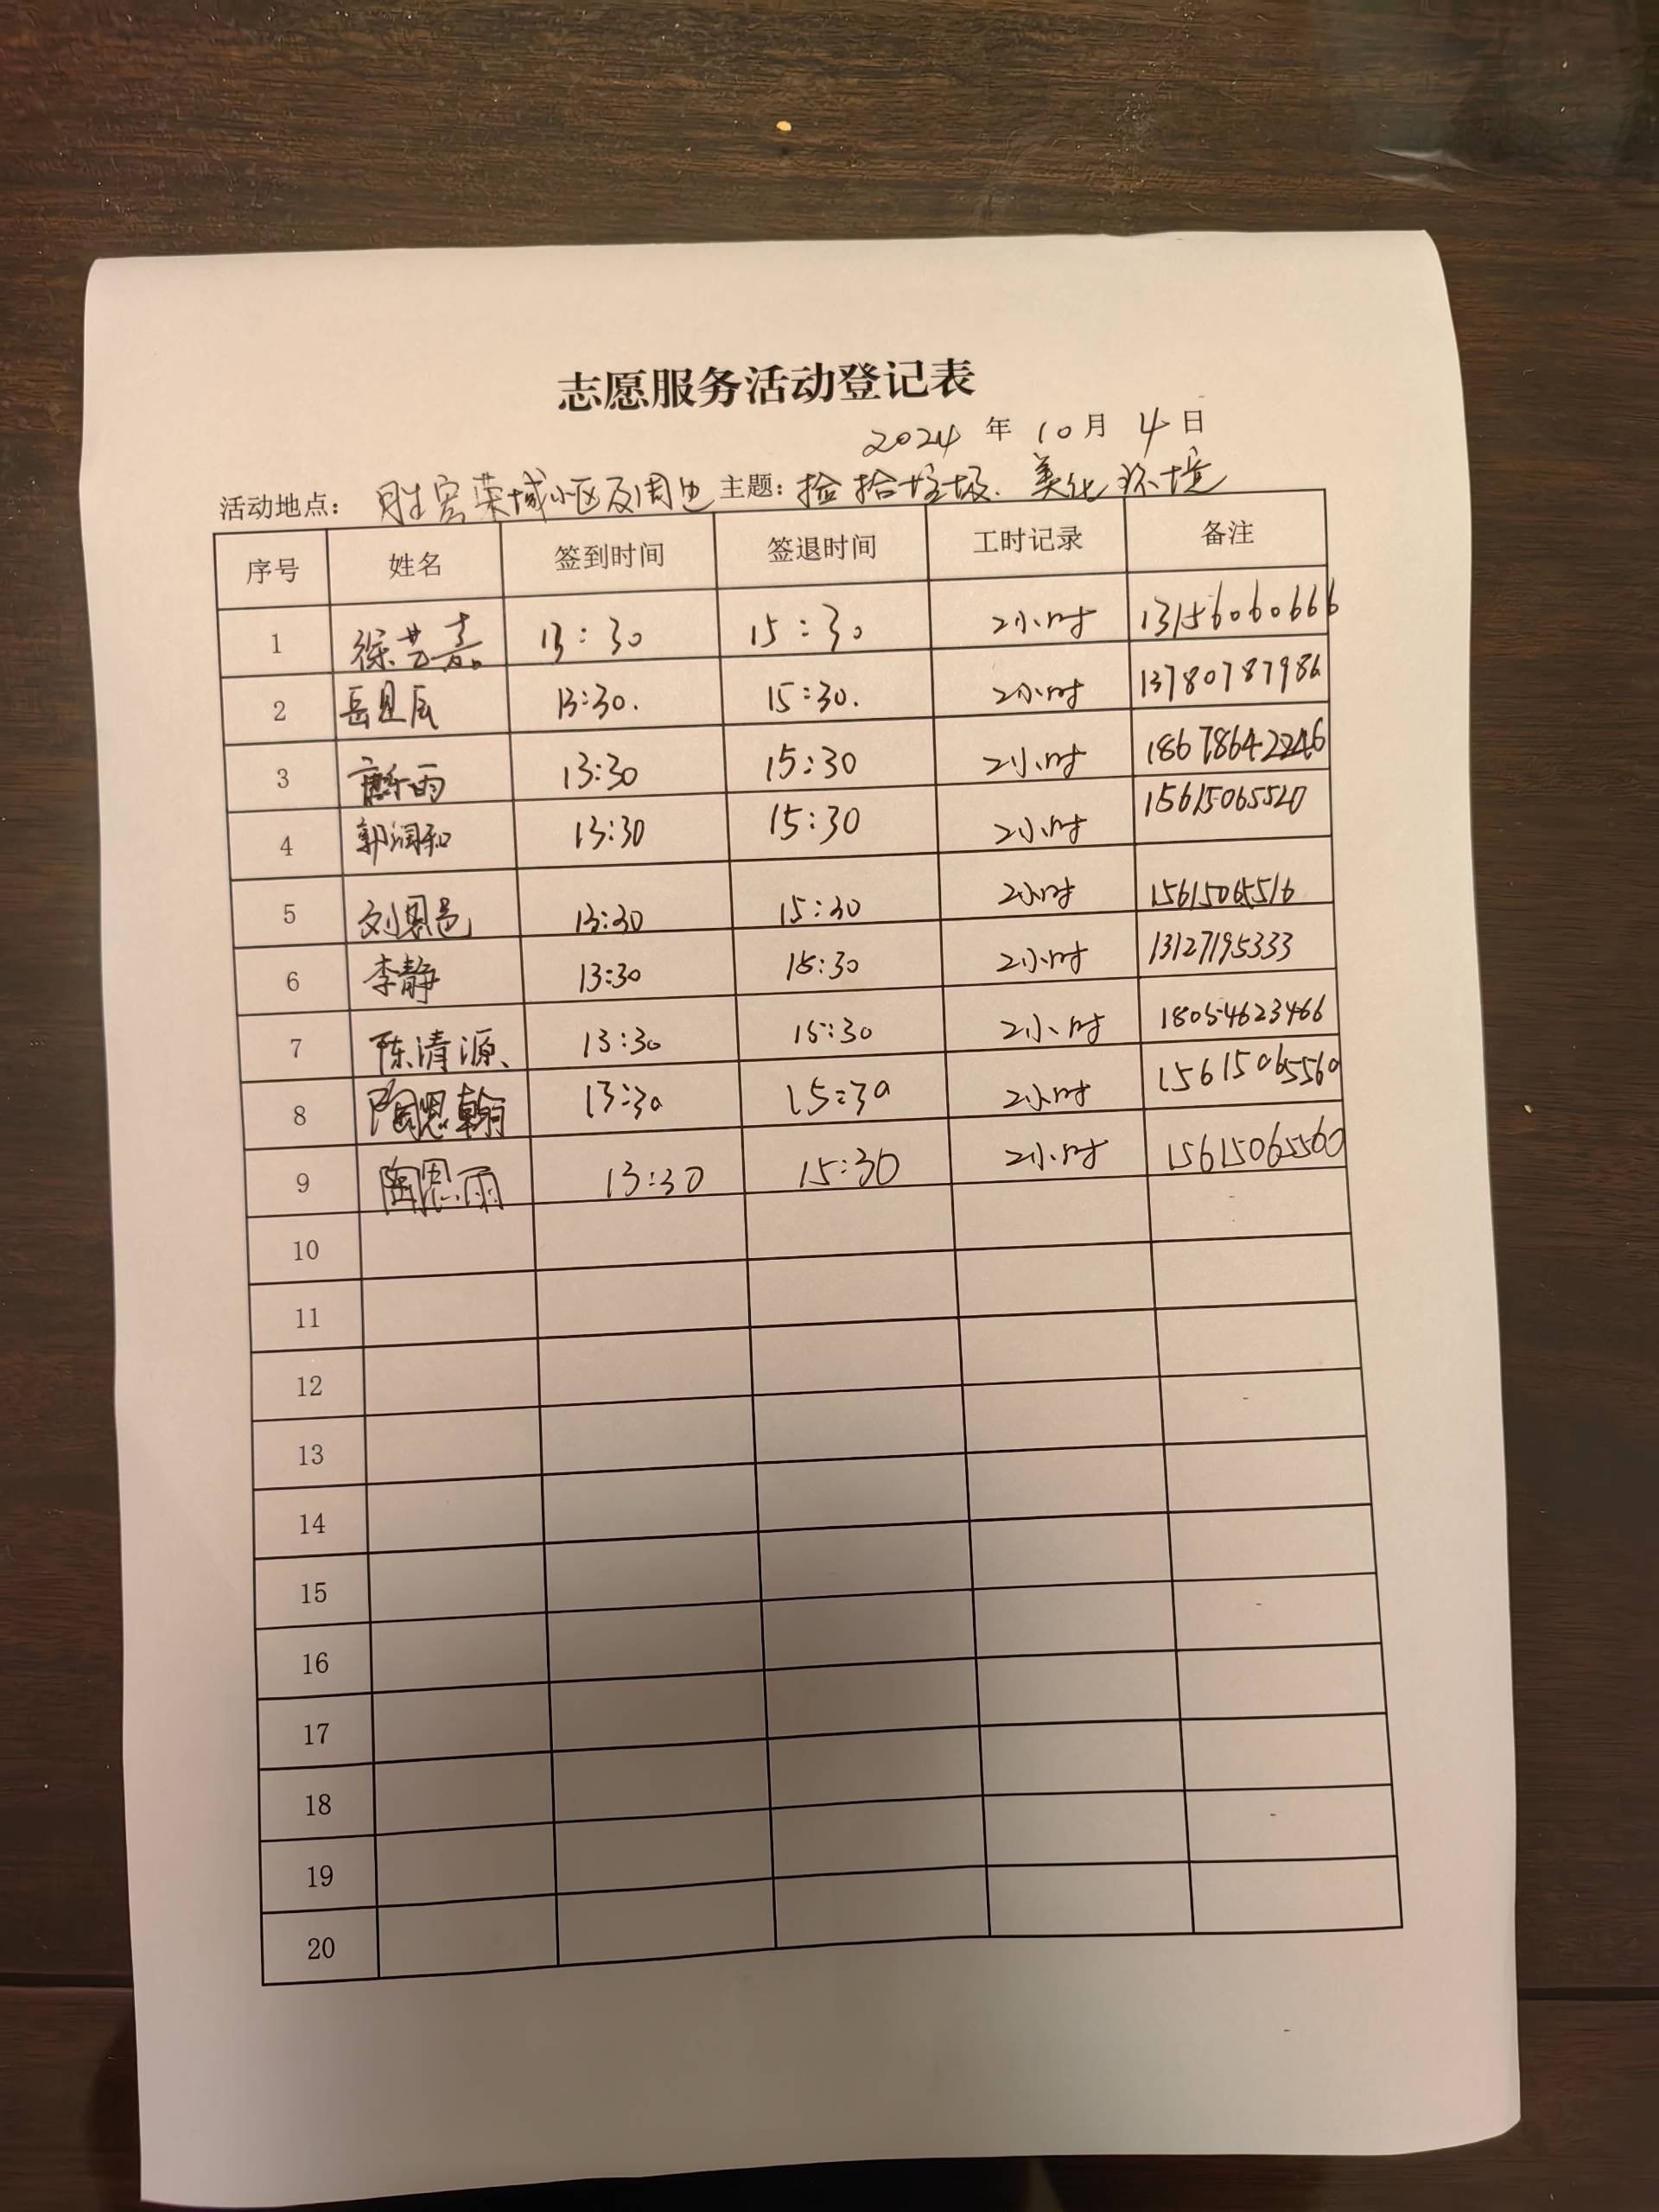 志愿服务活动登记表
2024 年 10 月 4 日
活动地点： 胜宏荣域小区及周边 主题：捡拾垃圾、美化环境
序号 姓名 签到时间 签退时间 工时记录 备注
1 徐艺嘉 13:30 15:30 2小时 13156060666
2 岳昱辰 13:30. 15:30. 2小时 13780787986
3 雨 13:30 15:30 2小时 18678642246
4 郭润和 13:30 15:30 2小时 15615065520
5 刘恩邑 13:30 15:30 2小时 15615065516
6 李静 13:30 15:30 2小时 13127195333
7 陈清源 13:30 15:30 2小时 18054623466
8 陶恩翰 13:30 15:30 2小时 15615065560
9 陶恩雨 13:30 15:30 2小时 15615065560
10
11
12
13
14
15
16
17
18
19
20